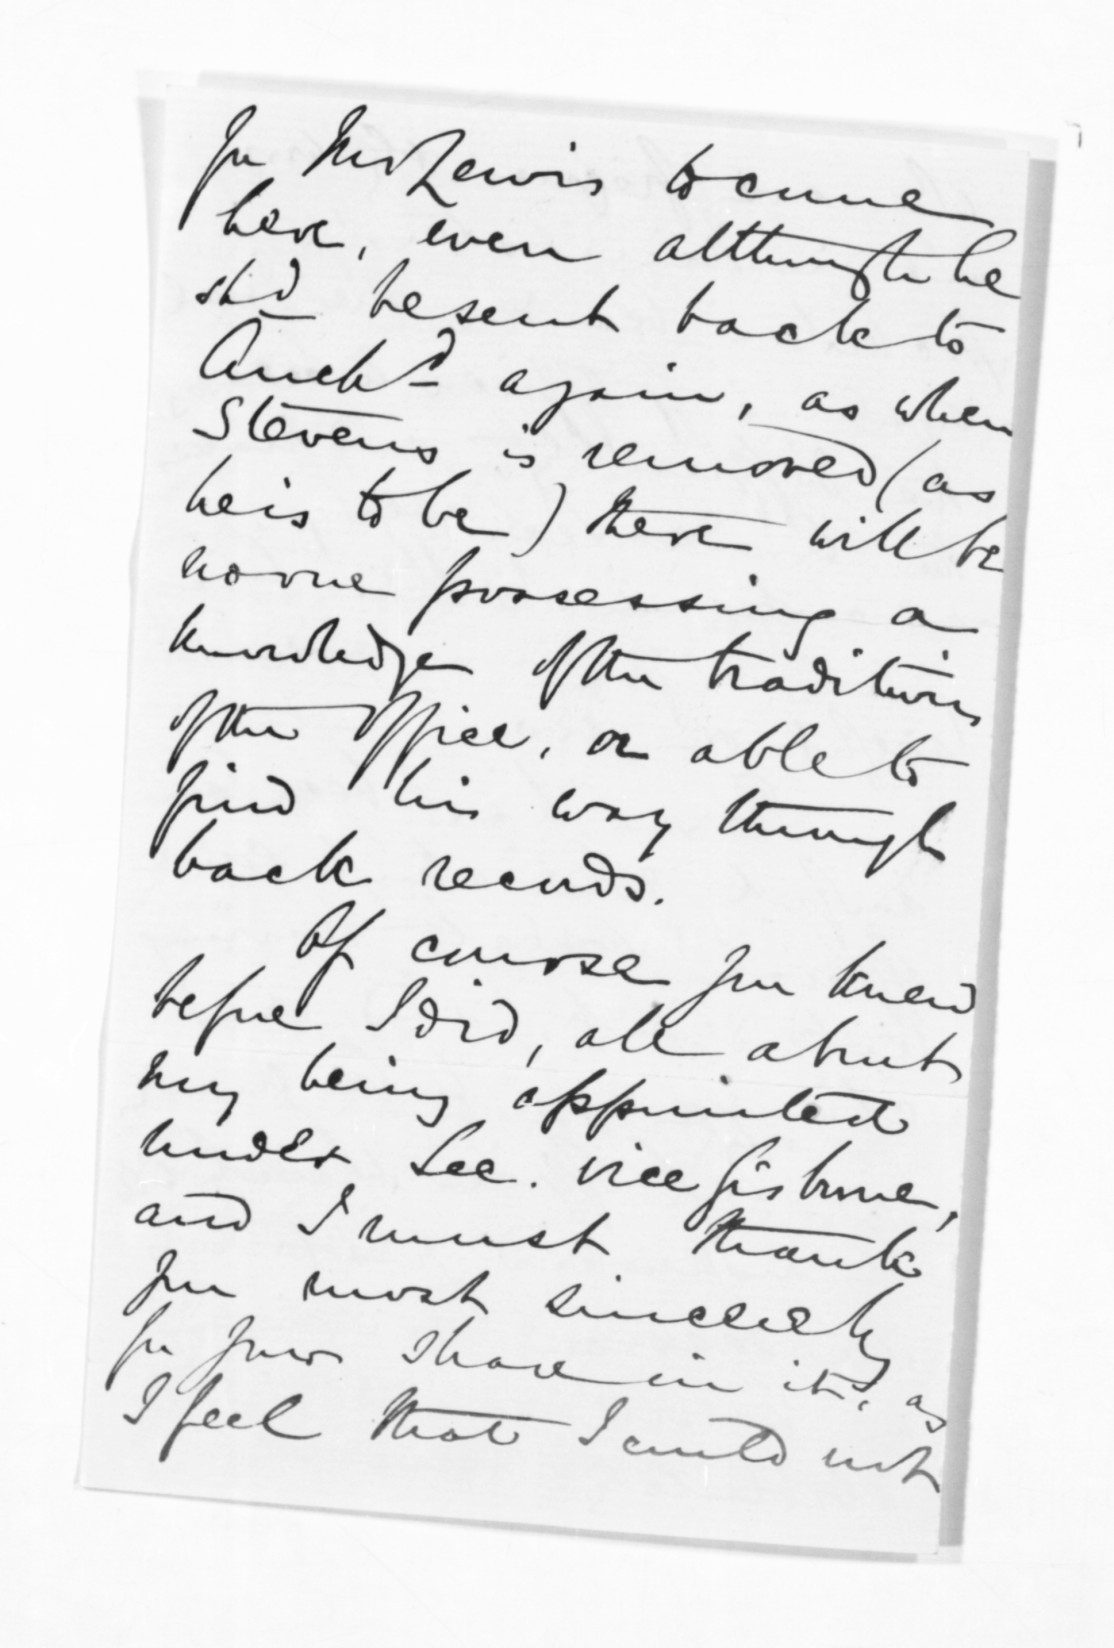 for Mr Lewis to come
here, even although he
shd be sent back to
Auckd again, as when
Stevens is removed (as
he is to be) there will be
no one possessing a
knowledge of the traditions
of the Office, or able to
find his way through
back records.
Of course you knew
before I did, all about
my being appointed
under Sec. vice Gisborne,
and I must thank
you most sincerely
for your share in it, as
I feel that I could not